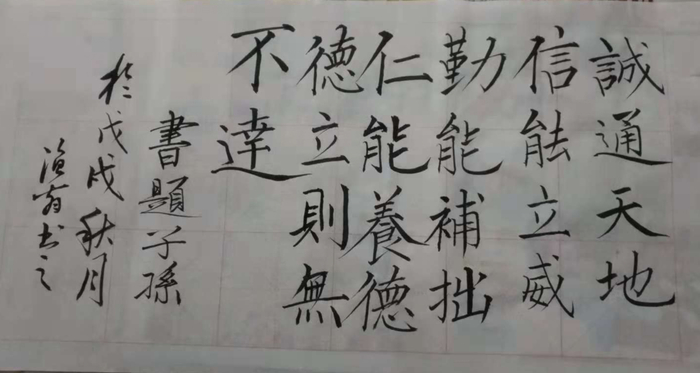 誠通天地
信能立威
勤能補拙
仁能養德
德立則無
不達
書題子孫
於戊戌秋月
翁書之